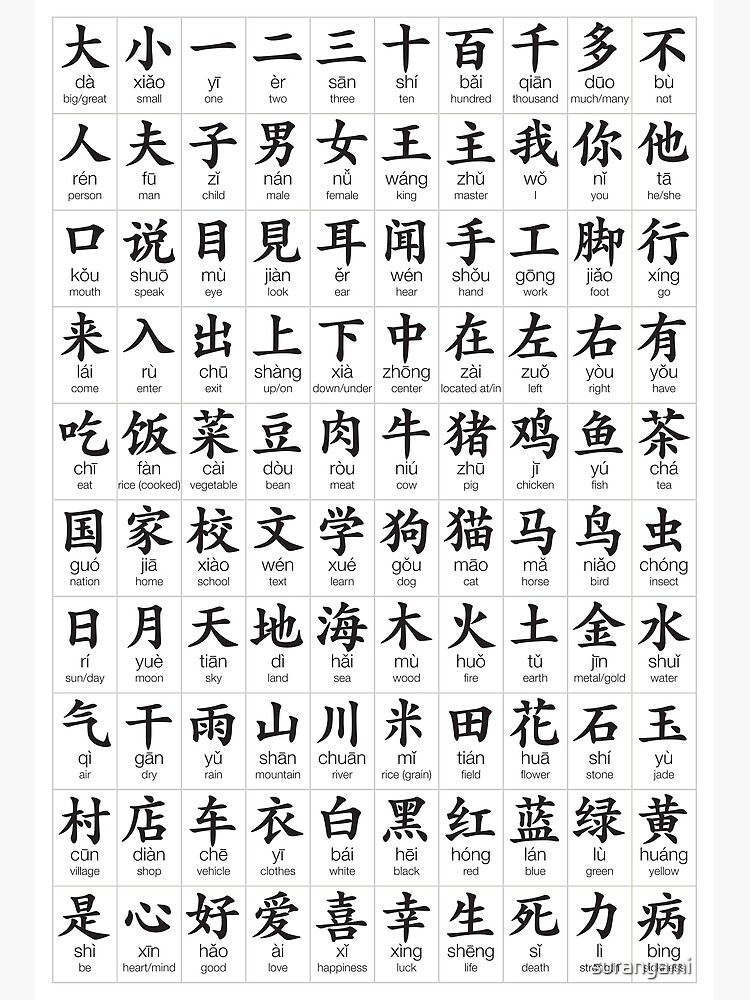 大 小 一 二 三 十 百 千 多 不
dà xiǎo yī èr sān shí bǎi qiān duō bù
big/great small one two three ten hundred thousand much/many not
人 夫 子 男 女 王 主 我 你 他
rén fū zǐ nán nǚ wáng zhǔ wǒ nǐ tā
person man child male female king master I you he/she
口 说 目 見 耳 闻 手 工 脚 行
kǒu shuō mù jiàn ěr wén shǒu gōng jiǎo xíng
mouth speak eye look ear hear hand work foot go
来 入 出 上 下 中 在 左 右 有
lái rù chū shàng xià zhōng zài zuǒ yòu yǒu
come enter exit up/on down/under center located at/in left right have
吃 饭 菜 豆 肉 牛 猪 鸡 鱼 茶
chī fàn cài dòu ròu niú zhū jī yú chá
eat rice (cooked) vegetable bean meat cow pig chicken fish tea
国 家 校 文 学 狗 猫 马 鸟 虫
guó jiā xiào wén xué gǒu māo mǎ niǎo chóng
nation home school text learn dog cat horse bird insect
日 月 天 地 海 木 火 土 金 水
rí yuè tiān dì hǎi mù huǒ tǔ jīn shuǐ
sun/day moon sky land sea wood fire earth metal/gold water
气 干 雨 山 川 米 田 花 石 玉
qì gān yǔ shān chuān mǐ tián huā shí yù
air dry rain mountain river rice (grain) field flower stone jade
村 店 车 衣 白 黑 红 蓝 绿 黄
cūn diàn chē yī bái hēi hóng lán lù huáng
village shop vehicle clothes white black red blue green yellow
是 心 好 爱 喜 幸 生 死 力 病
shì xīn hǎo ài xǐ xìng shēng sǐ lì bìng
be heart/mind good love happiness luck life death strength sickness
surangami